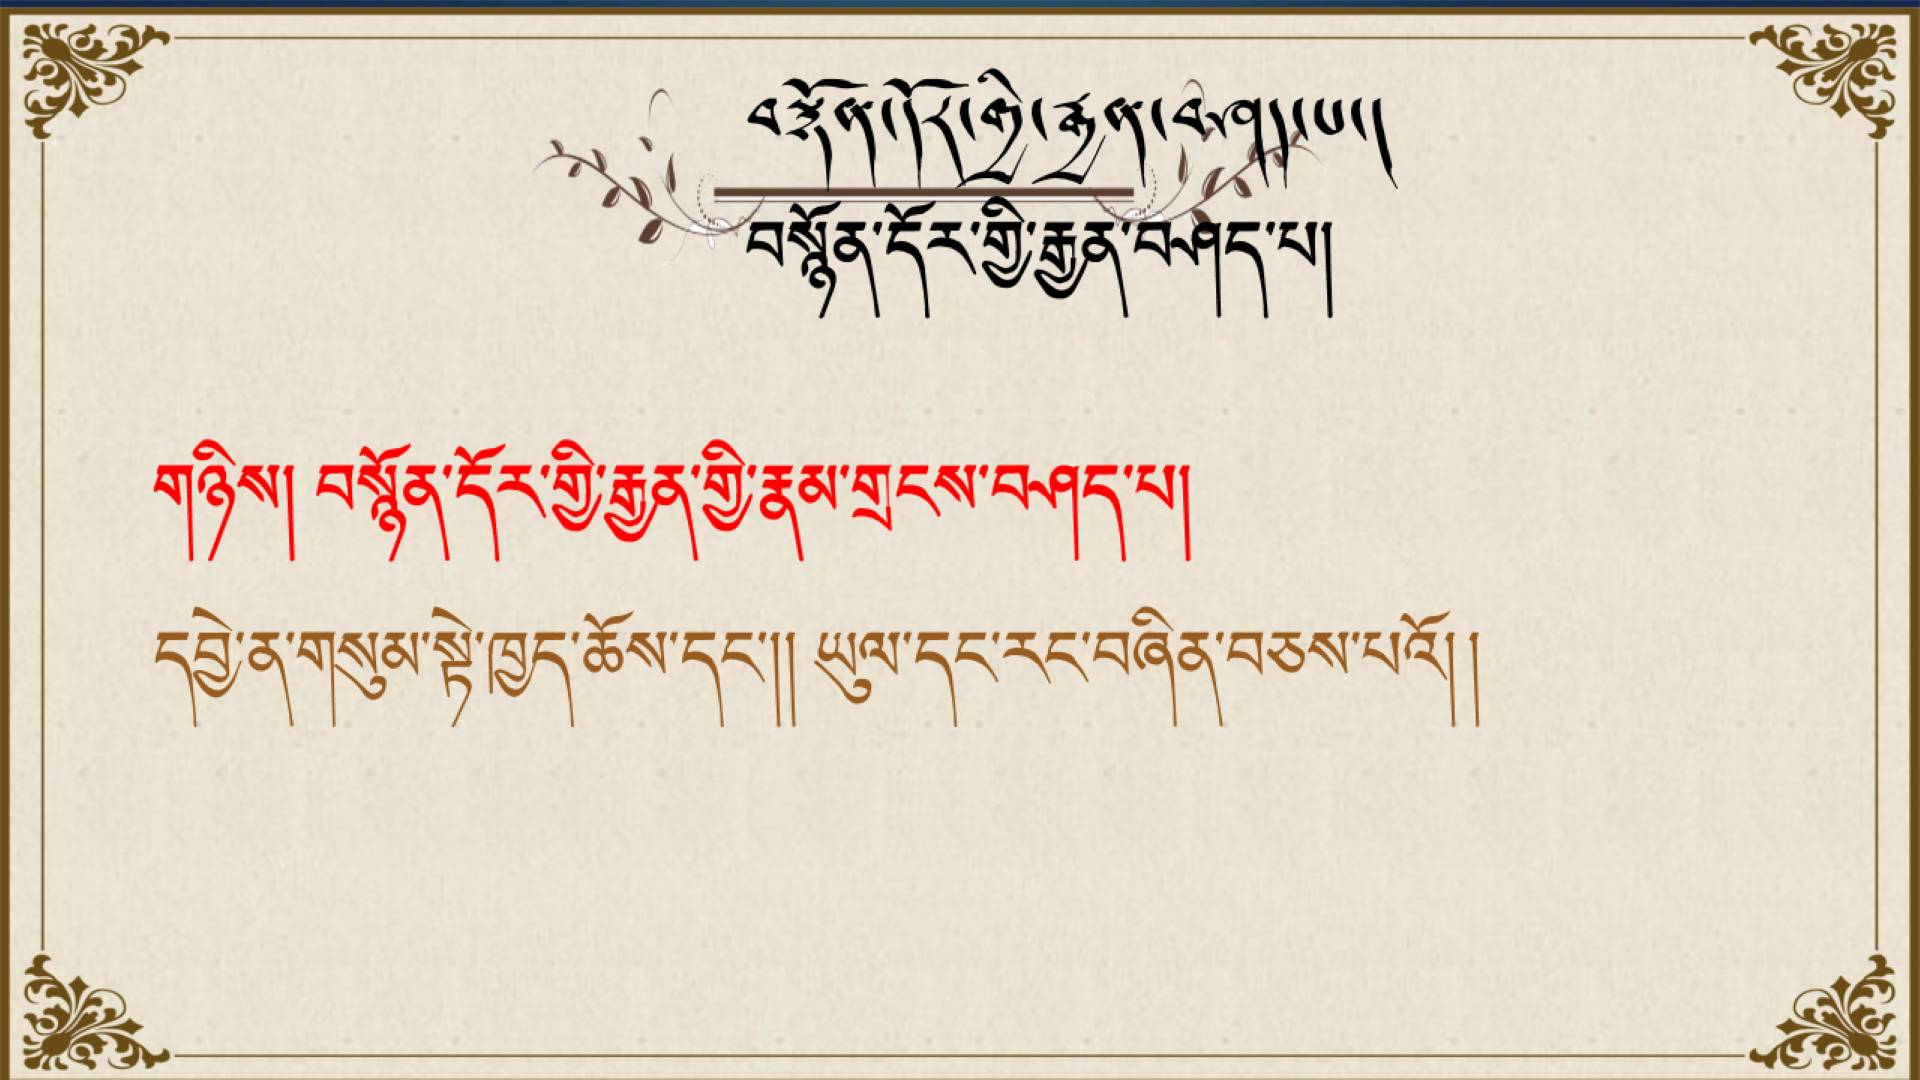 བསྙོན་དོར་གྱི་རྒྱན་བཤད་པ།
བསྙོན་དོར་གྱི་རྒྱན་བཤད་པ།
གཉིས། བསྙོན་དོར་གྱི་རྒྱན་གྱི་རྣམ་གྲངས་བཤད་པ།
དབྱེ་ན་གསུམ་སྟེ་ཁྱད་ཆོས་དང་།། ཡུལ་དང་རང་བཞིན་བཅས་པའོ། །